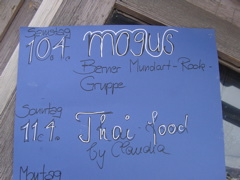 Samstag
10.4. MOGUS
Berner Mundart-Rock-
Gruppe
Sonntag
11.4. Thai-food
by Claudia
Montag